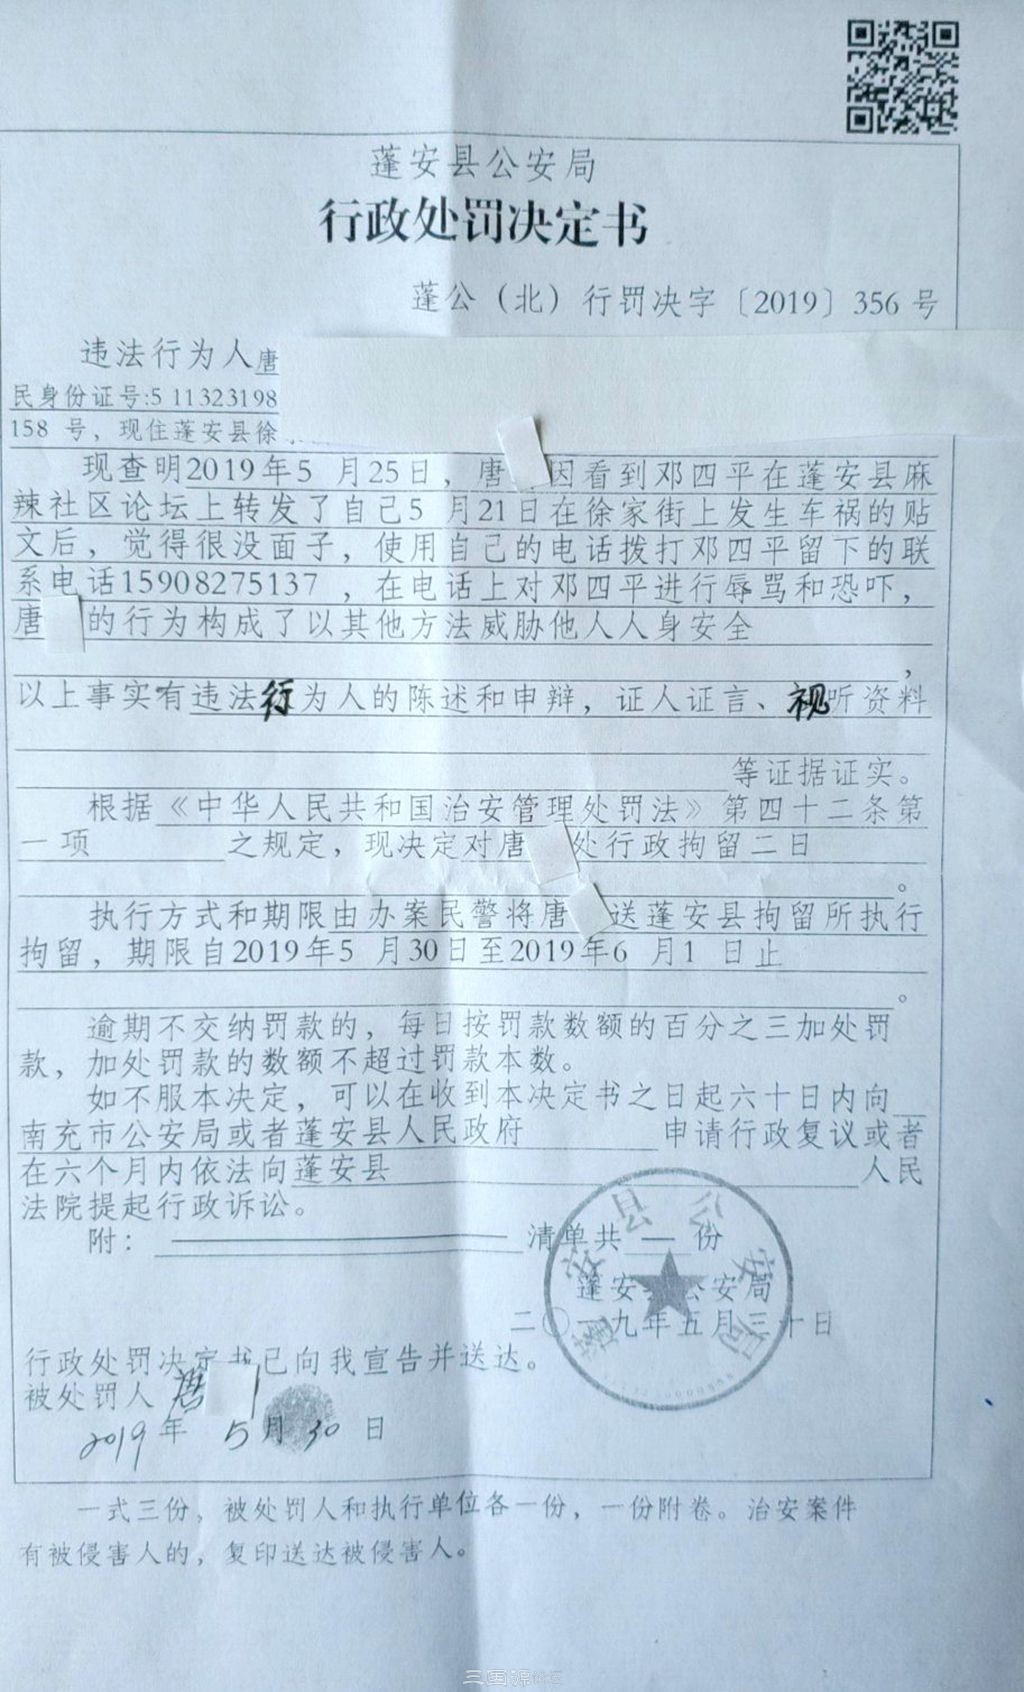 蓬安县公安局
行政处罚决定书
蓬公（北）行罚决字〔2019〕356 号
违法行为人唐
民身份证号:5 11323198
158 号，现住蓬安县徐
现查明2019年5 月25日，唐 因看到邓四平在蓬安县麻
辣社区论坛上转发了自己5 月21日在徐家街上发生车祸的贴
文后，觉得很没面子，使用自己的电话拨打邓四平留下的联
系电话15908275137 ，在电话上对邓四平进行辱骂和恐吓，
唐 的行为构成了以其他方法威胁他人人身安全
，
以上事实有违法行为人的陈述和申辩，证人证言、视听资料
等证据证实。
根据《中华人民共和国治安管理处罚法》第四十二条第
一项 之规定，现决定对唐 处行政拘留二日
。
执行方式和期限由办案民警将唐 送蓬安县拘留所执行
拘留，期限自2019年5 月30日至2019年6 月1 日止
。
逾期不交纳罚款的，每日按罚款数额的百分之三加处罚
款，加处罚款的数额不超过罚款本数。
如不服本决定，可以在收到本决定书之日起六十日内向
南充市公安局或者蓬安县人民政府 申请行政复议或者
在六个月内依法向蓬安县 人民
法院提起行政诉讼。
附： 清单共 一 份
蓬安县公安局
二〇一九年五月三十日
行政处罚决定书已向我宣告并送达。
被处罚人 唐
2019 年 5 月 30 日
一式三份，被处罚人和执行单位各一份，一份附卷。治安案件
有被侵害人的，复印送达被侵害人。
蓬安县公安局